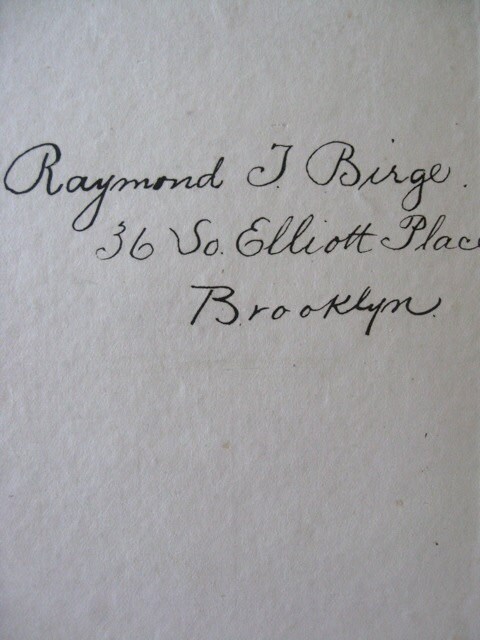 Raymond T. Birge.
36 So. Elliott Place
Brooklyn.